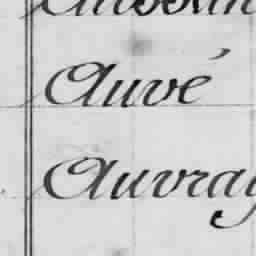 Auvé
Auvray